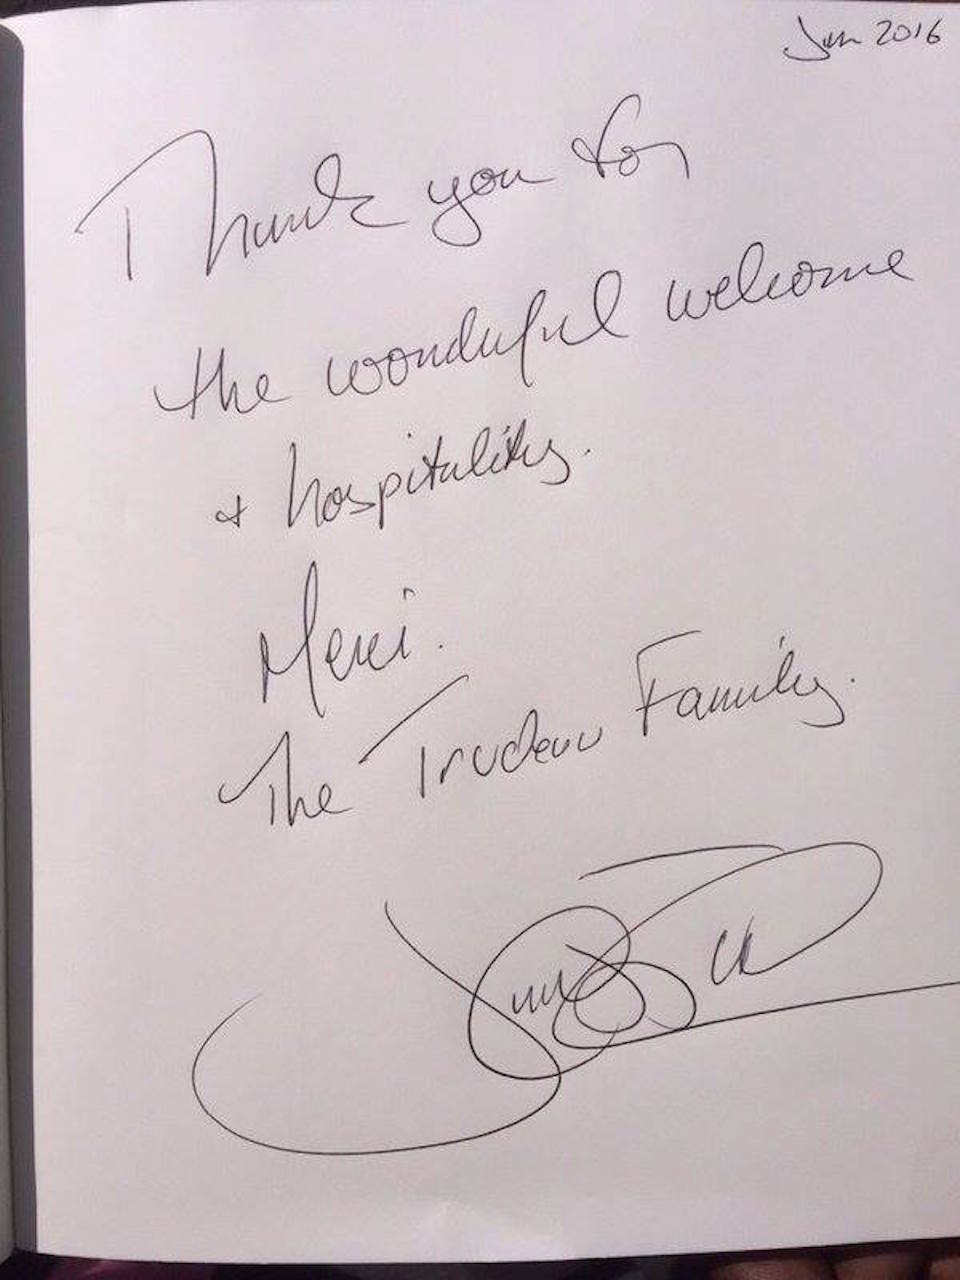 Jan 2016
Thank you for
the wonderful welcome
+ hospitality.
Merci.
The Trudeau Family.